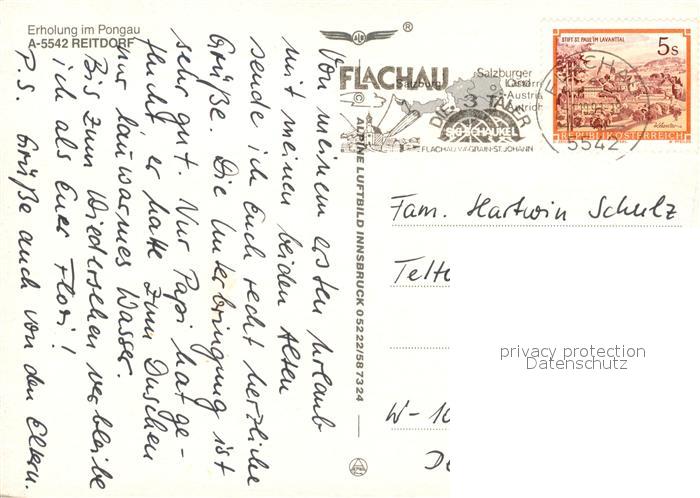 Erholung im Pongau
A-5542 REITDORF
Von meinem ersten Urlaub
mit meinen beiden Alten
sende ich Euch recht herzliche
Grüße. Die Unterbringung ist
sehr gut. Nur Papi hat ge-
flucht, er hatte zum Duschen
nur lauwarmes Wasser.
Bis zum Wiedersehen verbleibe
ich als Euer Flori!
P.S. Grüße auch von den Eltern.
ALPINE LUFTBILD INNSBRUCK 05222/587324
®
FLACHAU
Salzburger
Salzburg
Austria
DIE 3 TÄLER
SCHISCHAUKEL
FLACHAU-WAGRAIN-ST.JOHANN
FLACHAU
5542
STIFT ST. PAUL IM LAVANTTAL
5s
REPUBLIK ÖSTERREICH
Fam. Hartwin Schulz
Telto
W-10
privacy protection
Datenschutz